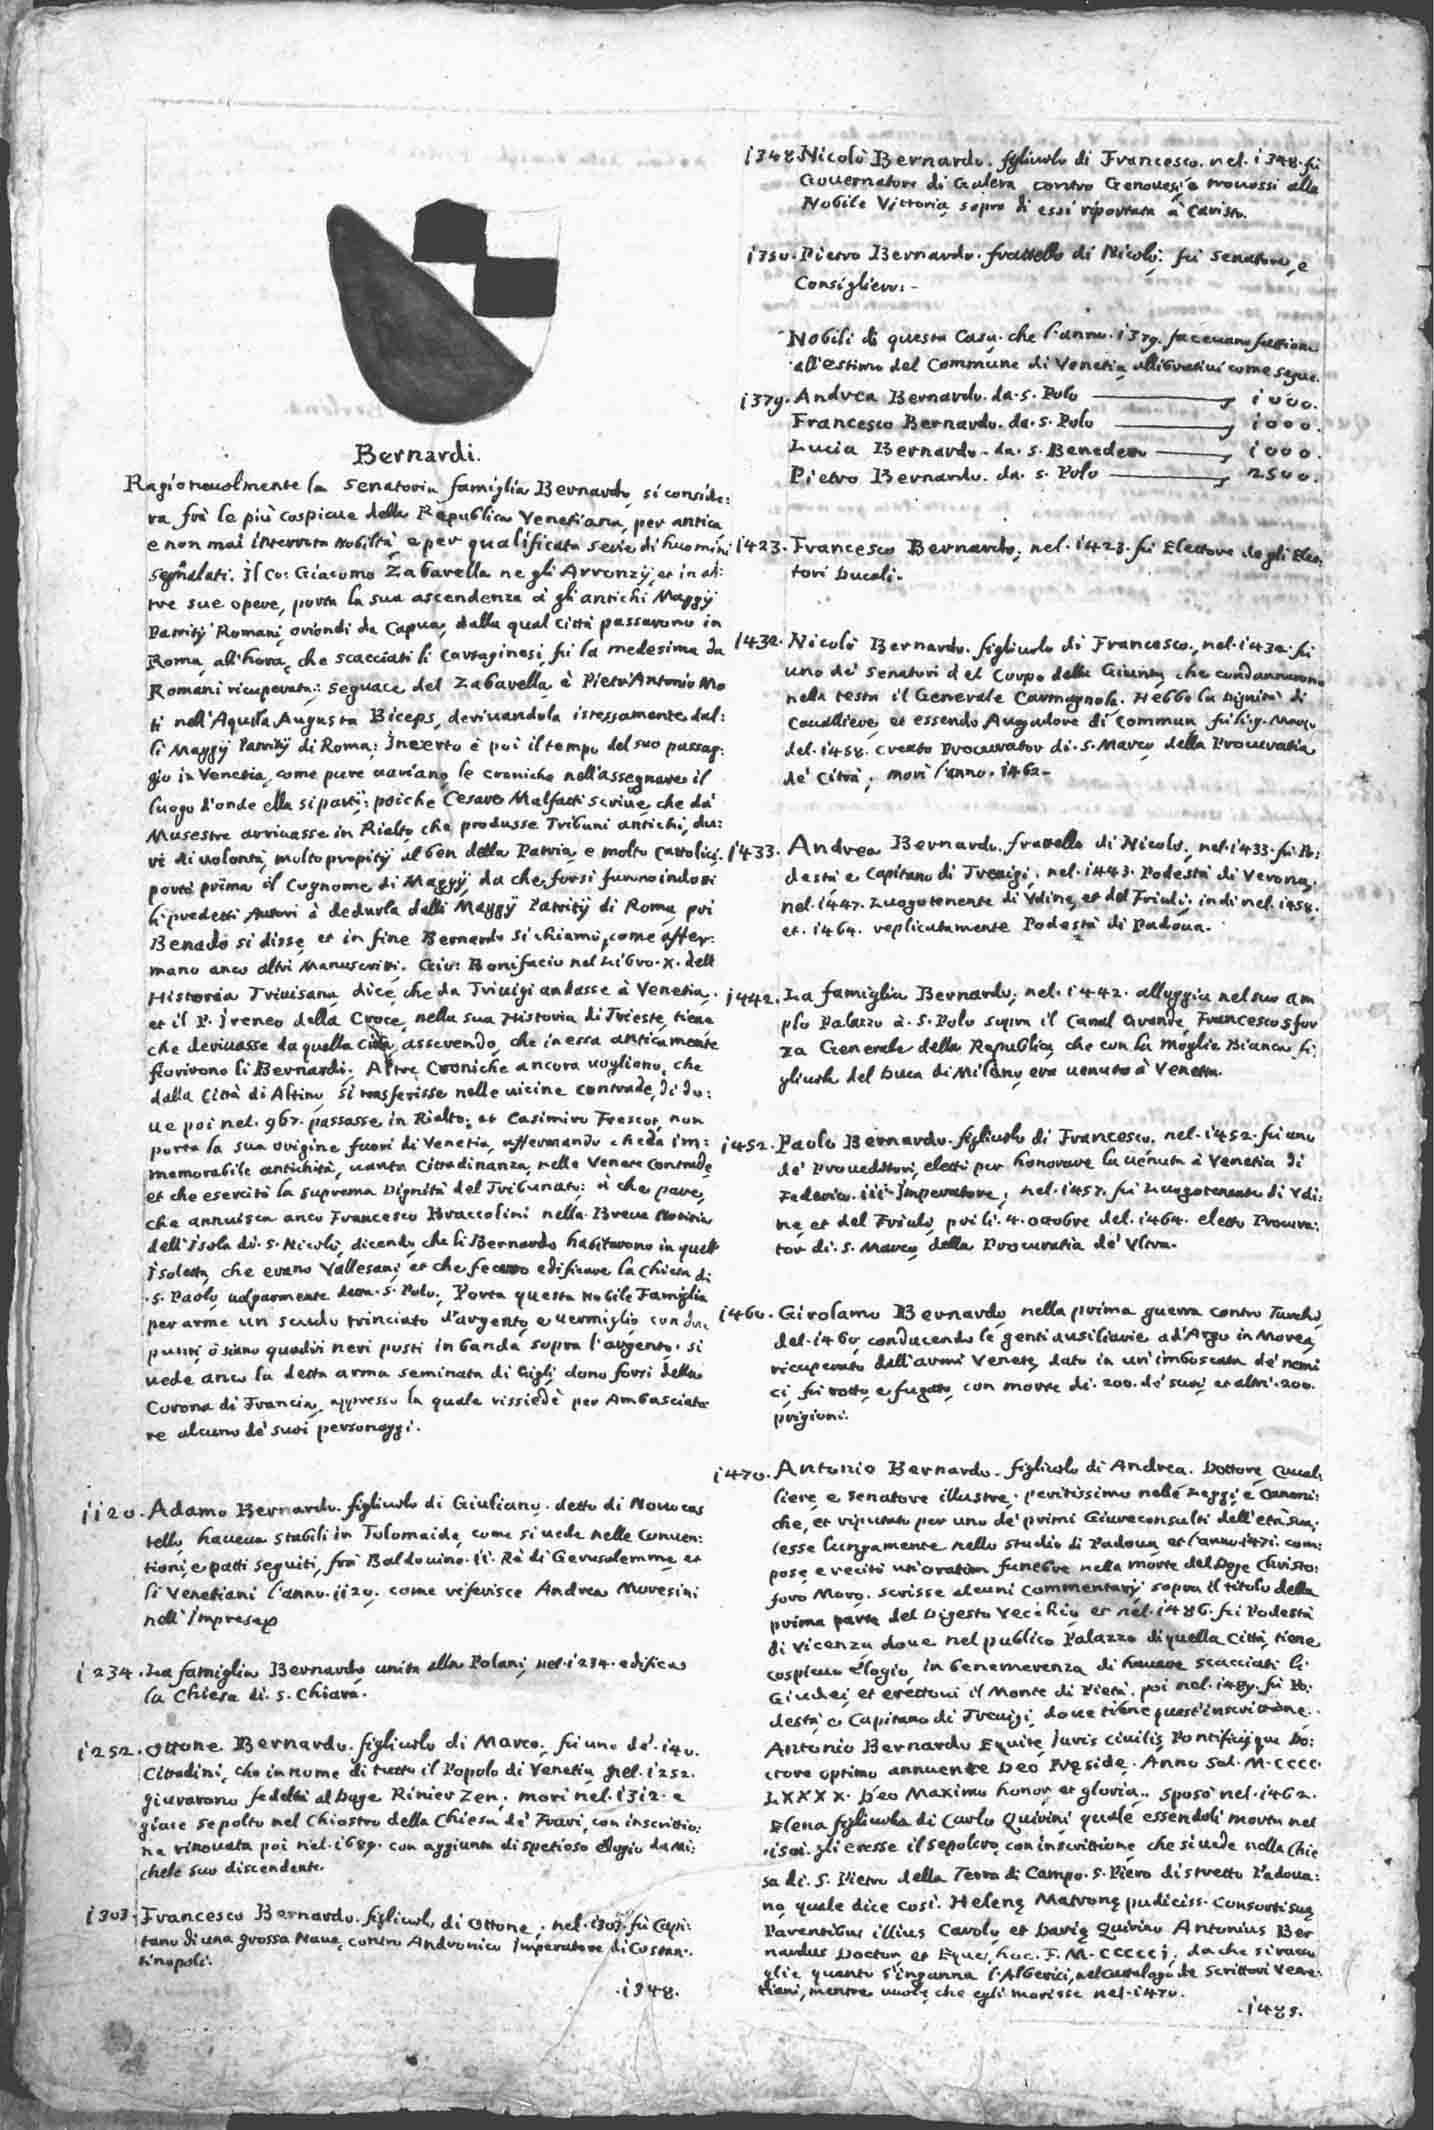 Bernardi.
Ragioneuolmente la senatoria famiglia Bernardo, si conside:
ra frà le più cospicue della Republica Venetiana, per antica
e non mai interrota nobiltà, e per qualificata serie di huomini
segnalati. Il Co: Giacomo Zabarella ne gli Arronzij, et in al:
tre sue opere, porta la sua ascendenza à gli antichi Maggij
Patritij Romani oriondi da Capua, dalla qual Città passarono in
Roma, all'hora, che scacciati li Cartaginesi, fù la medesima da
Romani ricuperata: seguace del Zabarella è Pietr'Antonio Mo
ti nell'Aquila Augusta Biceps, deriuandola istessamente dal:
li Maggij Patritij di Roma; Incerto è poi il tempo del suo passag:
gio in Venetia, come pure uariano le croniche nell'assegnare il
luogo d'onde ella si partij: poiche Cesare Malfatti scriue, che da
Musestre arriuasse in Rialto, che produsse Tribuni antichi, du:
ri di uolontà, molto propitij al ben della Patria, e molto Cattolici,
portò prima il Cugnome di Maggij, da che forsi furono indotti
li predetti Autori à dedurla dalli Maggij Patritij di Roma, poi
Benado si disse, et in fine Bernardo si chiamò, come affer:
mano anco altri Manuscritti. Gio: Bonifacio nel Libro. X. dell
Historia Triuisana, dice, che da Triuigi andasse à Venetia,
et il P. Ireneo della Croce, nella sua Historia di Trieste, tiene
che deriuasse da quella Città, asserendo, che in essa anticamente
fiorirono li Bernardi. Altre Croniche ancora uogliono, che
dalla Città di Altino, si trasferisse nelle uicine contrade, di do:
ue poi nel. 967. passasse in Rialto; et Casimiro Frescot, non
porta la sua origine fuori di Venetia, affermando che da im:
memorabile antichità, uanta Cittadinanza, nelle Venete Contrade,
et che esercitò la suprema Dignità del Tribunato: à che pare,
che annuisca anco Francesco Braccolini nella Breue Notitia
dell'Isola di. S. Nicolò, dicendo, che li Bernardo habitarono in quell
Isoletta, che erano Vallesani, et che fecero edificare la Chiesa di
.S. Paolo, uolgarmente detta. S. Polo. Porta questa Nobile Famiglia
per arme un scudo trinciato d'argento, e uermiglio con due
punti, ò siano quadri neri posti in banda sopra l'argento. si
uede anco la detta arma seminata di Gigli, dono forsi della
Corona di Francia, appresso la quale rissiedè per Ambasciato
re alcuno de' suoi personaggi.
1120. Adamo Bernardo. figliuolo di Giuliano, detto di Nouocas
tello, haueua stabili in Tolomaide, come si uede nelle Conuen:
tioni, e patti seguiti, frà Baldouino. II. Rè di Gerusalemme, et
li Venetiani l'anno. 1120. come riferisce Andrea Moresini
nell'Imprese
1234. La famiglia Bernardo, unita alla Polani, nel. 1234. edificò
la Chiesa di. S. Chiara.
1252. Ottone Bernardo. figliuolo di Marco, fù uno de'. 140.
Cittadini, che in nome di tutto il Popolo di Venetia, nel. 1252.
giurarono fedeltà al Doge Rinier Zen; morì nel. 1312. e
giace sepolto nel Chiostro della Chiesa de' Frari, con inscritio:
ne rinouata poi nel. 1689. con aggiunta di spetioso elogio da Mi:
chele suo discendente.
1303. Francesco Bernardo. figliuolo di Ottone, nel. 1303. fù Capi:
tano di una grossa Naue, contro Andronico Imperatore di Costan:
tinopoli.
.1348.
1348. Nicolò Bernardo. figliuolo di Francesco. nel. 1348. fù
Gouernatore di Galera, contro Genouesi, e trouossi alla
Nobile Vittoria, sopra di essi riportata à Caristo.
1350. Pietro Bernardo. fratello di Nicolò: fù Senatore, e
Consigliere:-
Nobili di questa Casa. che l'anno. 1379. faceuano fattione
all'estimo del Commune di Venetia, allibratiui come segue.
1379. Andrea Bernardo. da. S. Polo 1000.
Francesco Bernardo. da. S. Polo 1000.
Lucia Bernardo. da. S. Benedetto 1000.
Pietro Bernardo. da. S. Polo 2500.
1423. Francesco Bernardo, nel. 1423. fù Elettore de gli Elet:
tori Ducali.
1432. Nicolò Bernardo. figliuolo di Francesco, nel. 1432. fù
uno de' Senatori del Corpo della Giunta, che condannarono
nella testa il Generale Carmagnola. Hebbe la Dignità di
Caualliere, et essendo Auogadore di Commun, fù li. 9. Marzo
del. 1458. creato Procurator di. S. Marco, della Procuratia
de' Citrà; morì l'anno. 1462-
1433. Andrea Bernardo. fratello di Nicolò, nel. 1433. fù Po:
destà e Capitano di Treuigi, nel. 1443. Podestà di Verona,
nel. 1447. Luogotenente di Vdine, et del Friuli, indi nel. 1458.
et. 1464. replicatamente Podestà di Padoua.
1442. La famiglia Bernardo; nel. 1442. alloggiò nel suo am
plo Palazzo à. S. Polo sopra il Canal Grande, Francesco Sfor
za Generale della Republica, che con la moglie Bianca fi:
gliuola del Duca di Milano, era uenuto à Venetia.
1452. Paolo Bernardo. figliuolo di Francesco, nel. 1452. fù uno
de' Proueditori, eletti per honorare la uenuta à Venetia di
Federico. III. Imperatore; nel. 1457. fù Luogotenente di Vdi:
ne, et del Friuli, poi li. 4. Ottobre del. 1464. eletto Procura:
tor di. S. Marco, della Procuratia de' Vltra.
1460. Girolamo Bernardo, nella prima guerra contro Turcho,
del. 1460. conducendo le genti ausiliarie ad'Argo in Morea,
ricuperato dall'armi Venete, dato in un'imboscata de' nemi
ci, fù rotto, e fugato, con morte di. 200. de' suoi, et altri. 200.
prigioni.
1470. Antonio Bernardo. figliuolo di Andrea. Dottore, Caual:
liere, e Senatore illustre; peritissimo nelle Leggi, e Canoni:
che, et riputato per uno de' primi Giureconsulti dell'età sua;
lesse lungamente nello studio di Padoua, et l'anno. 1471. com:
pose, e recitò un'oration funebre nella morte del Doge Christo:
foro Moro. scrisse alcuni Commentarij sopra il titolo della
prima parte del Digesto Vecchio, et nel. 1486. fù Podestà
di Vicenza doue nel publico Palazzo di quella Città, tiene
cospicuo elogio, in benemerenza di hauere scacciati li
Giudei, et erettoui il Monte di Pietà. poi nel. 1489. fù Po:
destà, e Capitano di Treuigi, doue tiene quest'inscrittione.
Antonio Bernardo Equite, Juris ciuilis Pontificijque Do:
ctore optimo annuente Deo Præside. Anno Sal. M. CCCC.
LXXXX. Deo Maximo honor, et gloria. Sposò nel. 1462.
Elena figliuola di Carlo Quirini quale essendoli morta nel
.1501. gli eresse il sepolcro, con inscrittione che si uede nella Chie
sa di. S. Pietro della Terra di Campo. S. Piero distretto Padoua:
no, quale dice così. Helenę Matronę pudiciss. Consorti suę
Parentibus illius Carolo, et Darię Quirino Antonius Ber
nardus Doctor, et Eques, hoc. F. M. CCCCCI. da che si racco
glie quanto s'inganna l'Alberici, nel Catalogo de Scrittori Vene:
tiani, mentre uuole, che egli morisse nel. 1470.
.1485.